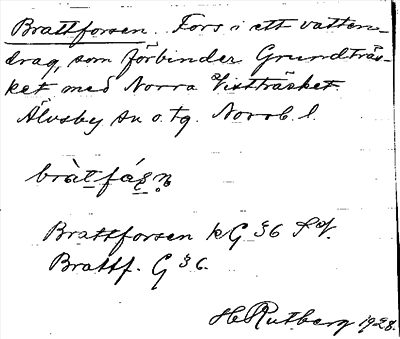 Brattforsen. Fors i ett vatten-
drag, som förbinder Grundträs-
ket med Norra Vistträsket
Älvsby sn o. tg. Norrb. l.
Brattforsen kG 36
Brattf. G 36.
H Rutberg 1928.